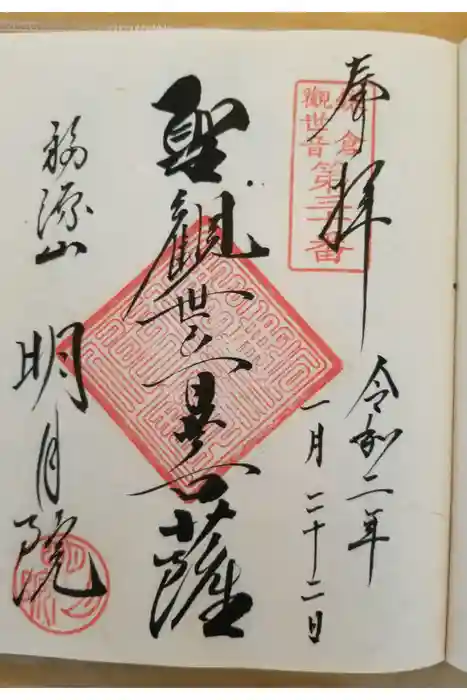 奉拝
鎌倉
觀世音
第三十番
令和二年
一月二十二日
聖觀世音菩薩
福源山
明月院